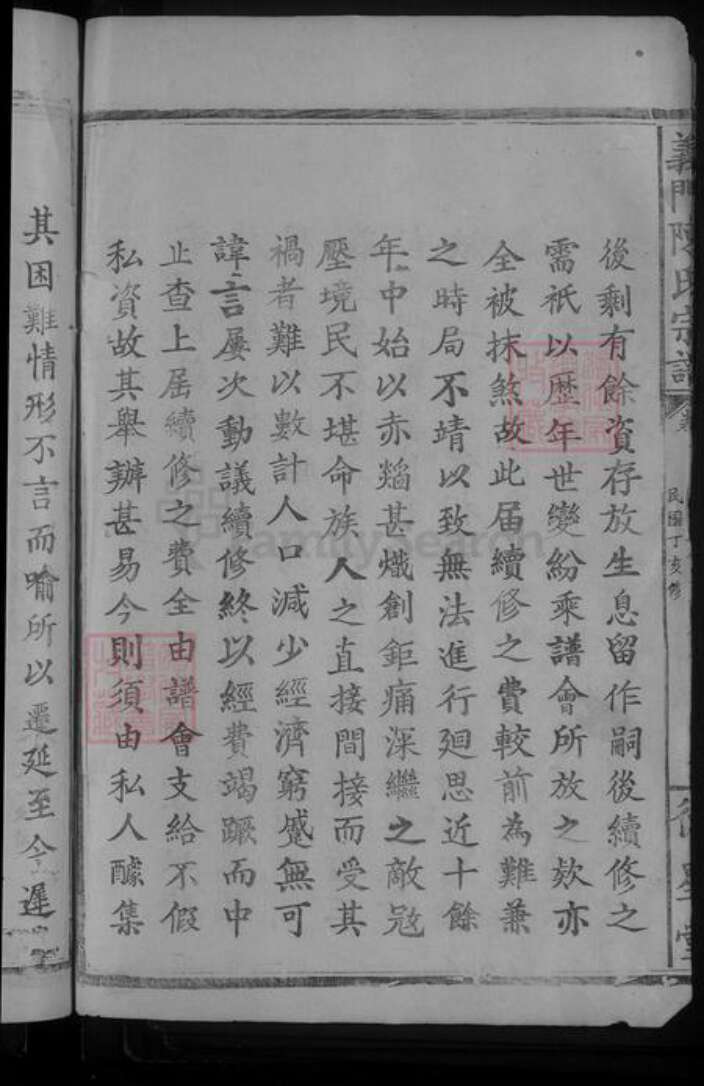 義門陳氏宗譜
民國丁亥修
後剩有餘資存放生息留作嗣後續修之
需祇以歷年世變紛乘譜會所放之欵亦
全被抹煞故此届續修之費較前為難兼
之時局不靖以致無法進行廻思近十餘
年中始以赤熖甚熾創鉅痛深繼之敵寇
壓境民不堪命族人之直接間接而受其
禍者難以數計人口減少經濟窮蹙無可
諱言屡次動議續修終以經費竭蹶而中
止查上屆續修之費全由譜會支給不假
私資故其舉辦甚易今則須由私人醵集
其困難情形不言而喻所以遷延至今遲
FamilySearch